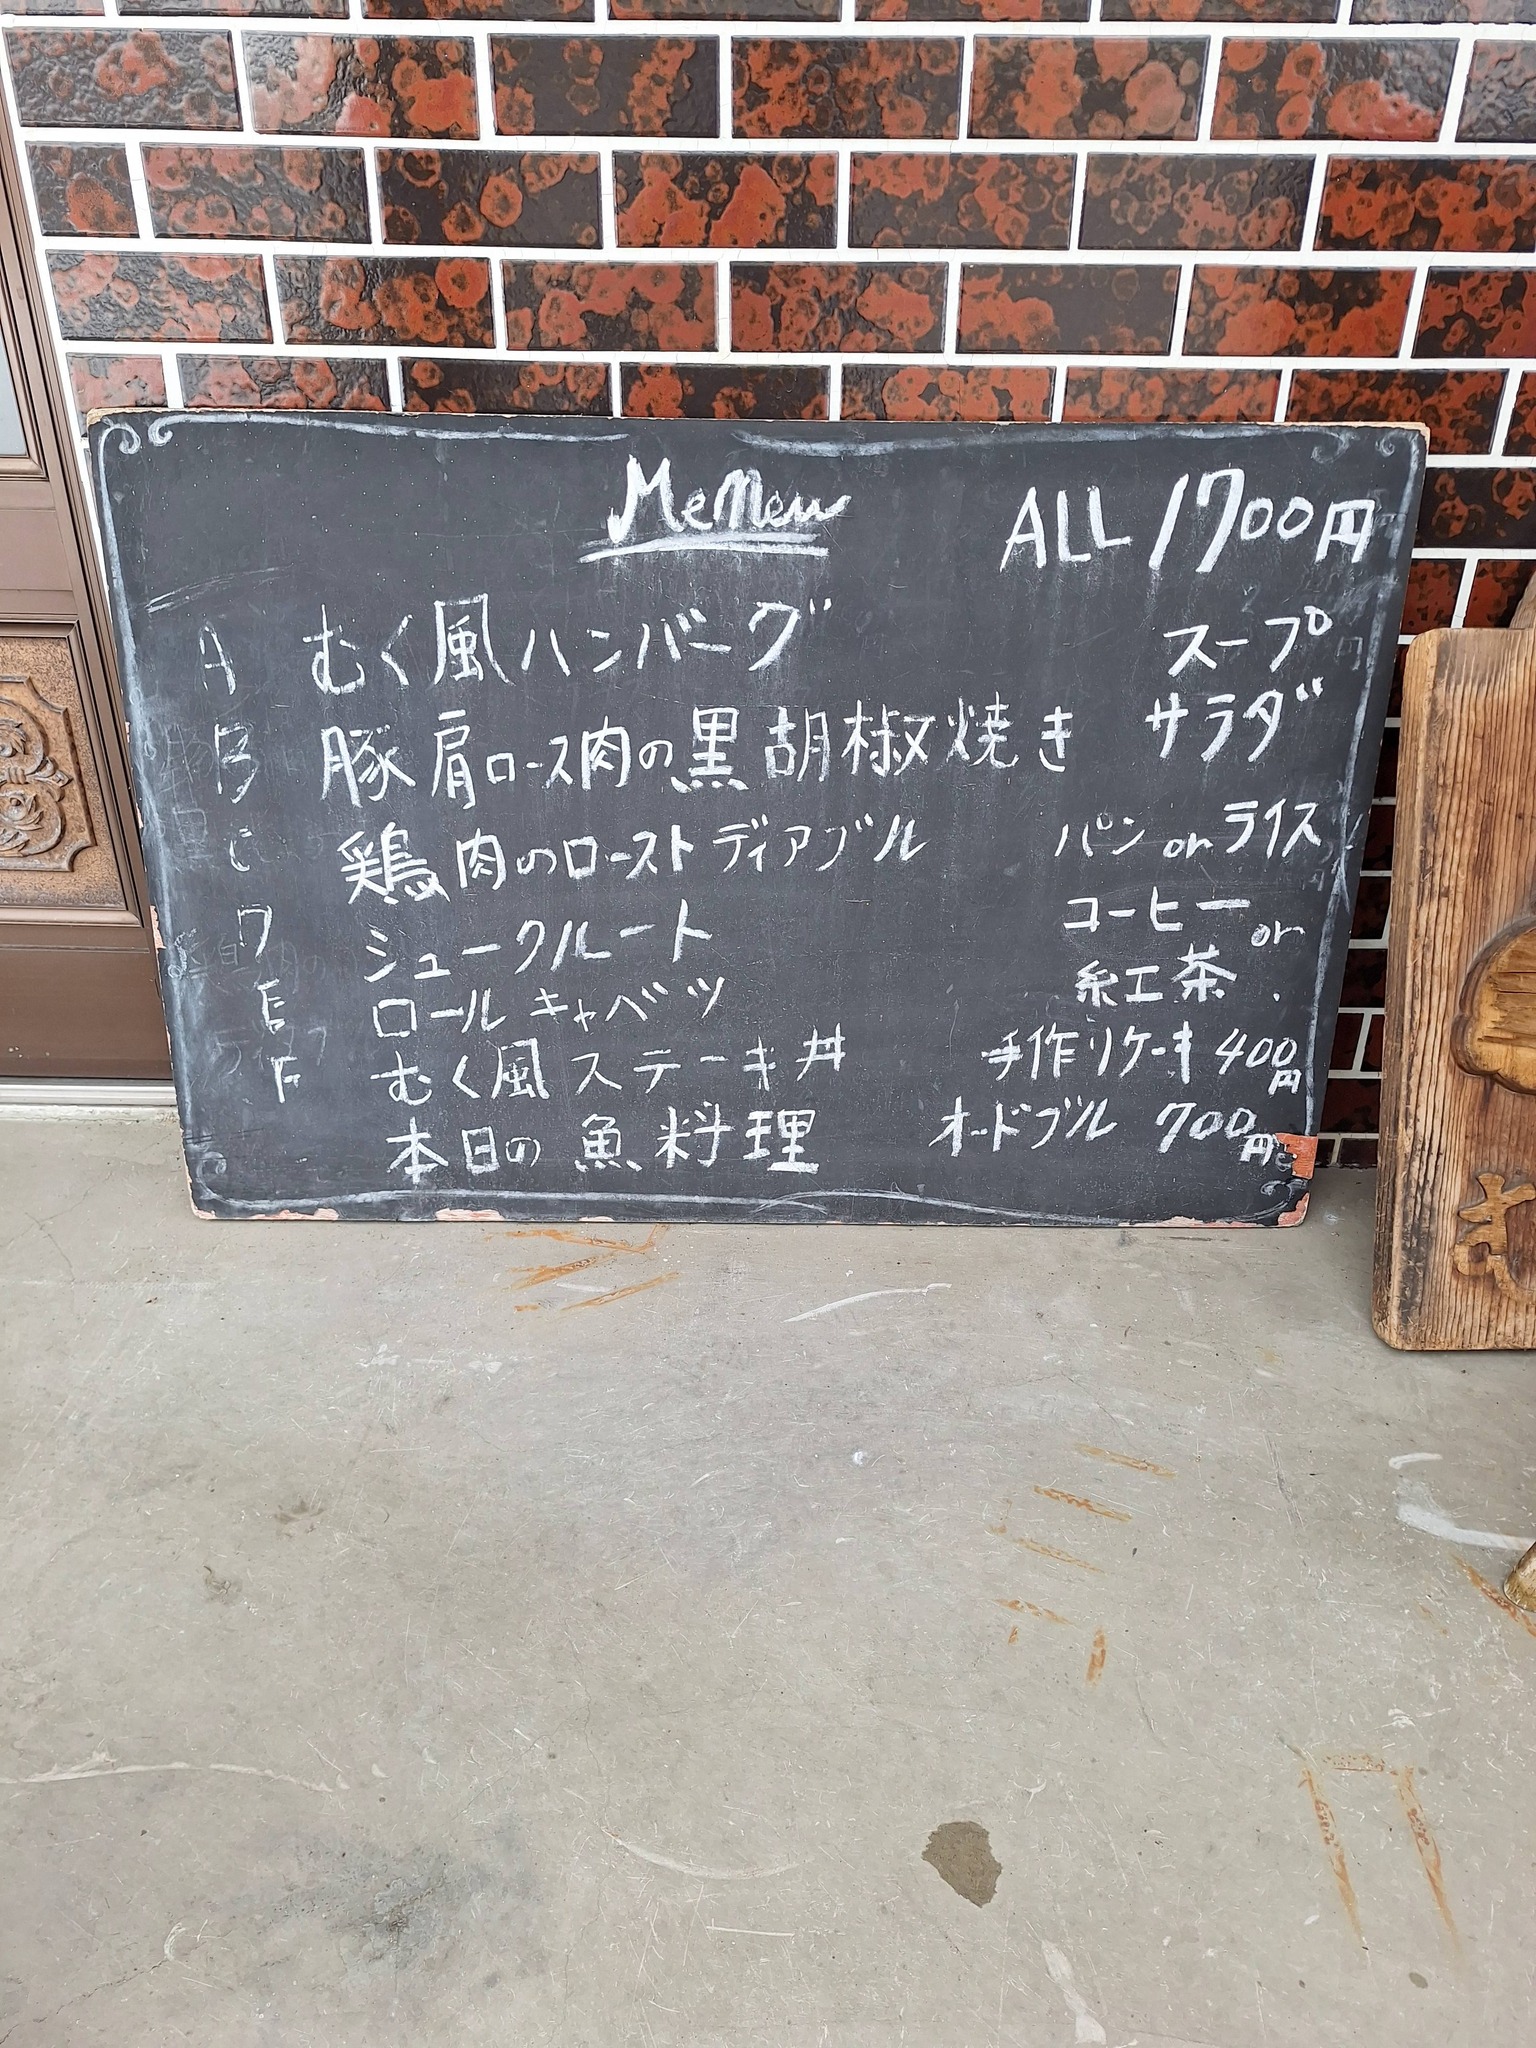 Menew ALL 1700円
A むく風ハンバーグ スープ
B 豚肩ロース肉の黒胡椒焼き サラダ
C 鶏肉のローストディアブル パン or ライス
シュークルート コーヒー or
E ロールキャベツ 紅茶
F むく風ステーキ丼 手作りケーキ 400円
本日の魚料理 オードブル 700円
む